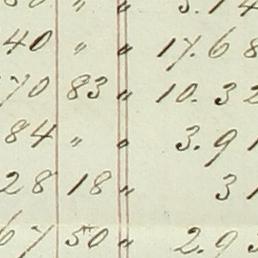 40 " " 17.68
70 83 " 10.32
84 " " 3.91
28 18 " 31
67 50 " 2.93